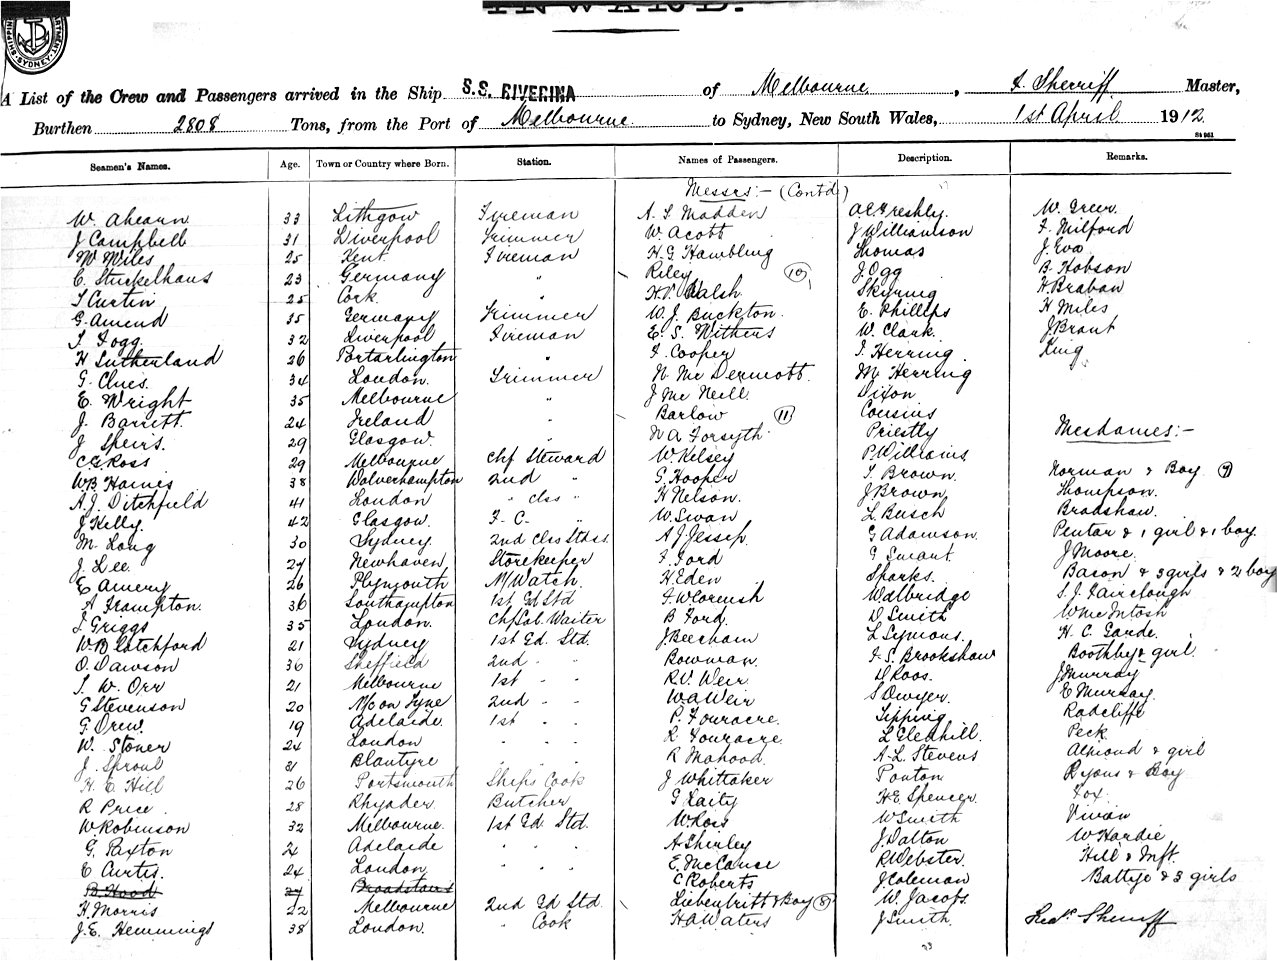 INWARD.
SYDNEY
A List of the Crew and Passengers arrived in the Ship S.S. RIVERINA of Melbourne, J. Sherriff Master,
Burthen 2808 Tons, from the Port of Melbourne to Sydney, New South Wales, 1st April 1912
St 961
Seamen's Names. Age. Town or Country where Born. Station. Names of Passengers. Description. Remarks.
Messrs:- (Contd)
W. Ahearn 33 Lithgow Fireman A. S. Madden A C Freshly. W. Greer
J Campbell 31 Liverpool Trimmer W Acott J Williamson F. Milford
W Miles 25 Kent Fireman H. G. Hambling Thomas J. Eva
C. Stuckelhaus 23 Germany " Riley (10) J. Ogg B Hobson
T Curtin 25 Cork " H.V. Walsh Skyring H. Braban
G. Amend 35 Germany Trimmer W. J. Buckton. E. Phillips H Miles
T. Fogg 32 Liverpool Fireman E. S. Withers W. Clark. J Brant
H Sutherland 26 Portarlington " F. Cooper J. Herring. King
G. Clues. 34 London. Trimmer N. Mc Dermott. M. Herring
E. Wright 35 Melbourne " J Mc Neill. Dixon
J. Barritt. 24 Ireland " Barlow (11) Cousins
J Speirs. 29 Glasgow. " N A Forsyth Priestly Mesdames:-
C G Ross 29 Melbourne Chf Steward W Kelsey P Williams
W B Haines 38 Wolverhampton 2nd " G. Hooper T. Brown. Norman & Boy (9)
A. J. Ditchfield 41 London " Clss " H Nelson. J Brown, Thompson.
J Kelly. 42 Glasgow. F. C. " W. Swan L. Busch Bradshaw.
M. Long 30 Sydney 2nd Clss Stdss A J Jessep. G Adamson. Pentar & 1 girl & 1 boy.
J. Lee. 27 Newhaven Storekeeper F. Ford G Smart J Moore.
E Amery 26 Plymouth M/Watch. H. Eden Sparks. Bacon & 3 girls & 2 boy
A Frampton. 36 Southampton 1st Gd Std F. W Cornish Walbridge S. J. Fairclough
J Griggs 35 London. Chf Sal. Waiter B Ford. D Smith W McIntosh
W B Catchford 21 Sydney 1st Gd. Std. J. Beecham L Symons. H. C. Garde.
O. Dawson 36 Sheffield 2nd " " Bowman. F. S. Brookshaw Boothby & girl.
T. W. Orr 21 Melbourne 1st " " R. V. Weir D Roos. J Murray
G Stevenson 20 N/c on Tyne 2nd " " W. A Weir S Dwyer. E Murray.
G. Drew. 19 Adelaide 1st " " P. Fouracre. Tipping Radcliffe
W. Stoner 24 London " " " R Fouracre L Gledhill. Peck
J. Sproul 31 Blantyre " " " R Mahood. A. L. Stevens Almond & girl
H. E. Hill 26 Portsmouth Ships Cook J Whittaker Ponton Ryons & Boy
R Price. 28 Rhyader Butcher G Laity H. E. Spencer. Fox
W. Robinson 32 Melbourne. 1st Gd. Std. W. Ross W Smith Vivian
G. Paxton 21 Adelaide " " " A Shirley J. Dalton W Hardie
C Curtis. 24 London " " " E. McCause R Webster. Hill & Inft.
B Hood 27 Broadstairs C Roberts J. Coleman Battye & 3 girls
H. Morris 22 Melbourne 2nd Gd Std. Liebentritt & Boy (8) W. Jacobs
J. E. Hemmings 38 London. " Cook H A Waters J Smith.